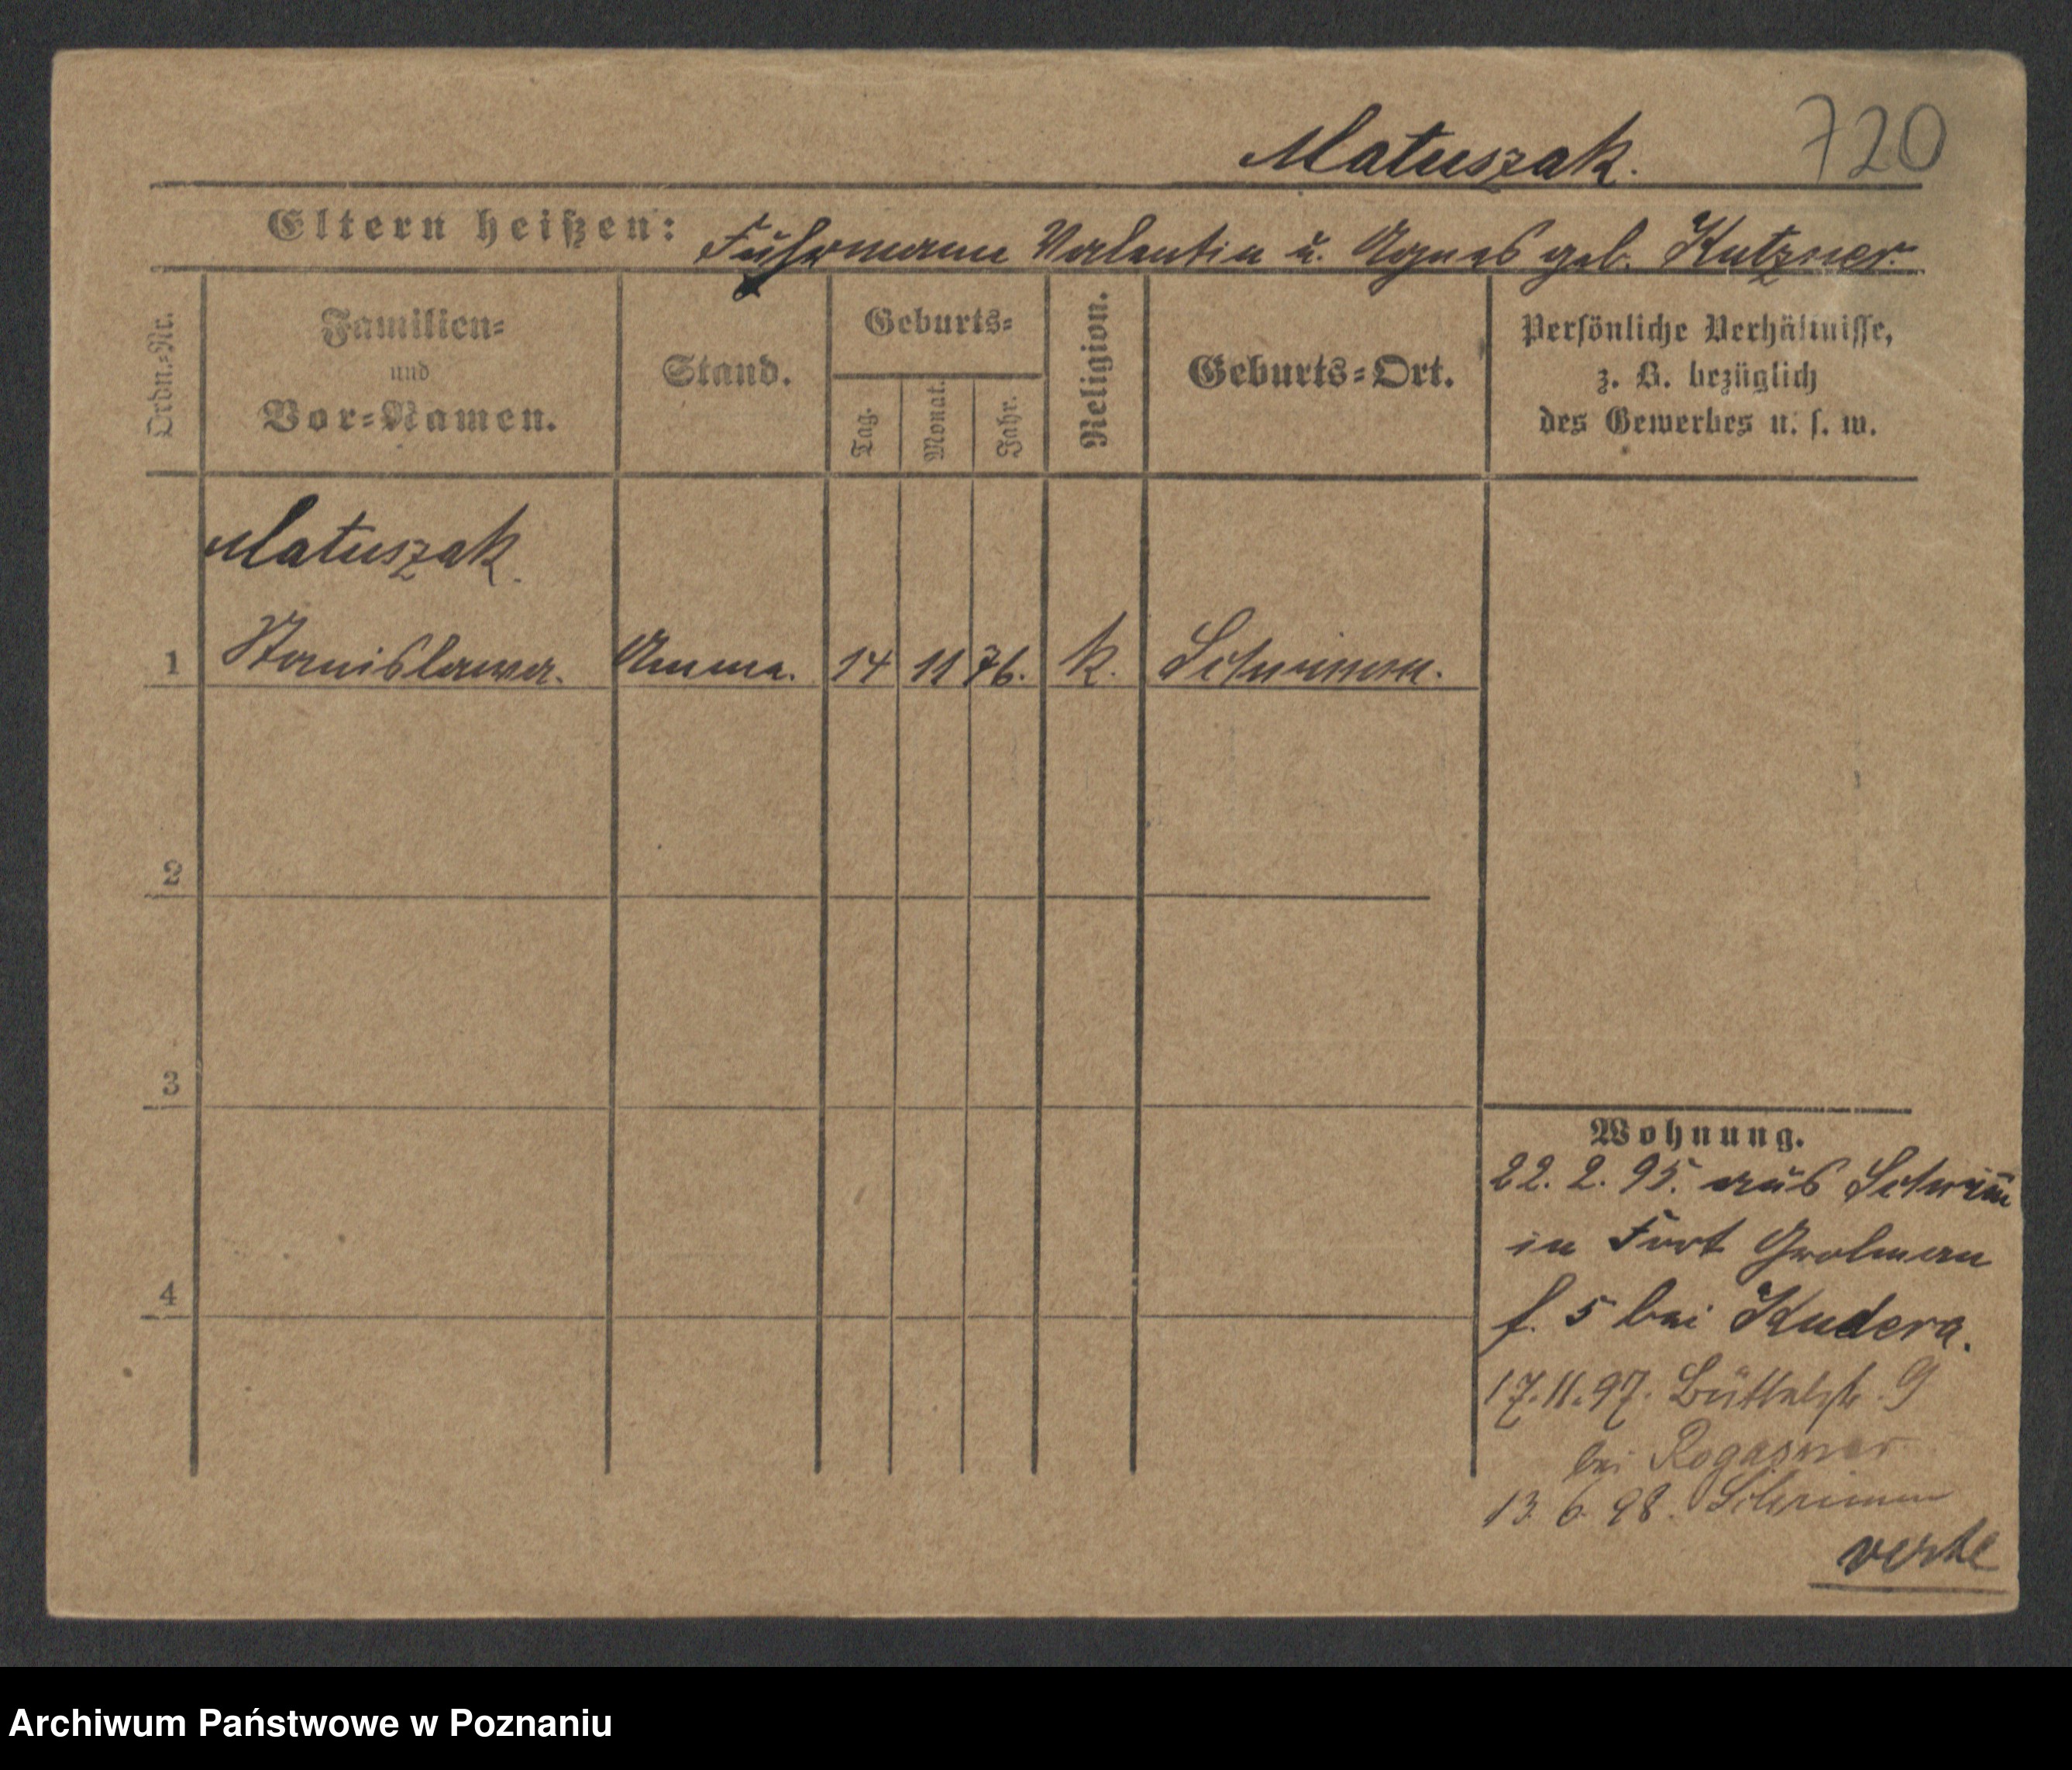 Matuszak. 720
Eltern heißen: Fuhrmann Valentin u. Agnes geb. Kutzner.
Ordn.=Nr.
Familien=
und
Vor=Namen.
Stand.
Geburts=
Tag.
Monat.
Jahr.
Religion.
Geburts=Ort.
Persönliche Verhältnisse,
z. B. bezüglich
des Gewerbes u. s. w.
Matuszak.
1 Stanislawa. Amme. 14 11 76. k. Schrimm.
2
3
4
Wohnung.
22. 2. 95. aus Schrim̄
in Fort Grolman
f. 5 bei Kudera.
17.11.97. Büttelstr. 9
bei Rogasner
13. 6. 98. Schrimm
verte
Archiwum Państwowe w Poznaniu